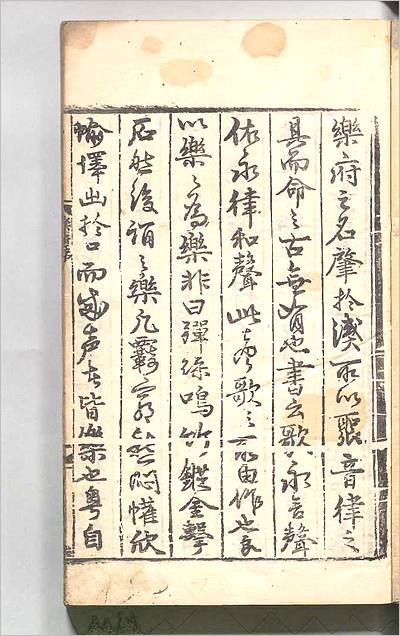 樂府之名肇於漢所以聚音律之
具而命之古無有也書云歌永言聲
依永律和聲此歌之所由作也
以樂之為樂非曰彈絲鳴竹鏗金擊
石然後謂之樂凡羈窮愁悶懽欣
愉懌出於口而成聲者皆樂也粤自